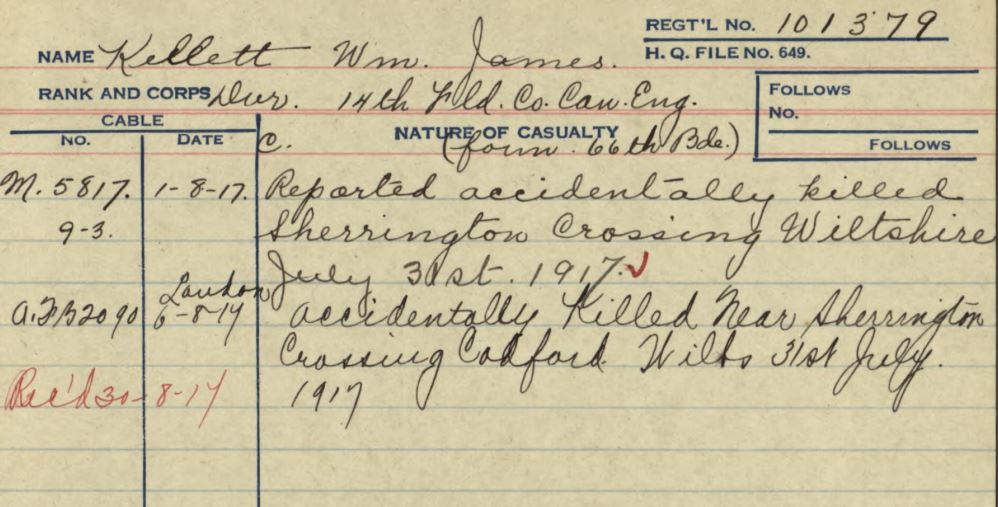 REGT'L No. 101379
NAME Kellett Wm. James.
H. Q. FILE No. 649.
RANK AND CORPS Dvr. 14th Fld. Co. Can. Eng.
FOLLOWS
No.
FOLLOWS
CABLE
No. DATE
C. NATURE OF CASUALTY
(form. 66th Bde.)
M. 5817. 1-8-17. Reported accidentally killed
9-3. Sherrington Crossing Wiltshire
July 31st. 1917.
London
A.F.B2090 6-8-17 accidentally Killed Near Sherrington
Crossing Codford. Wilts 31st July.
Rec'd 30-8-17 1917